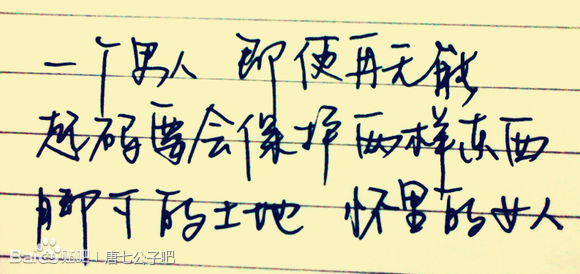 一个男人 即便再无能
起码要会保护两样东西
脚下的土地 怀里的女人
Baidu贴吧｜唐七公子吧